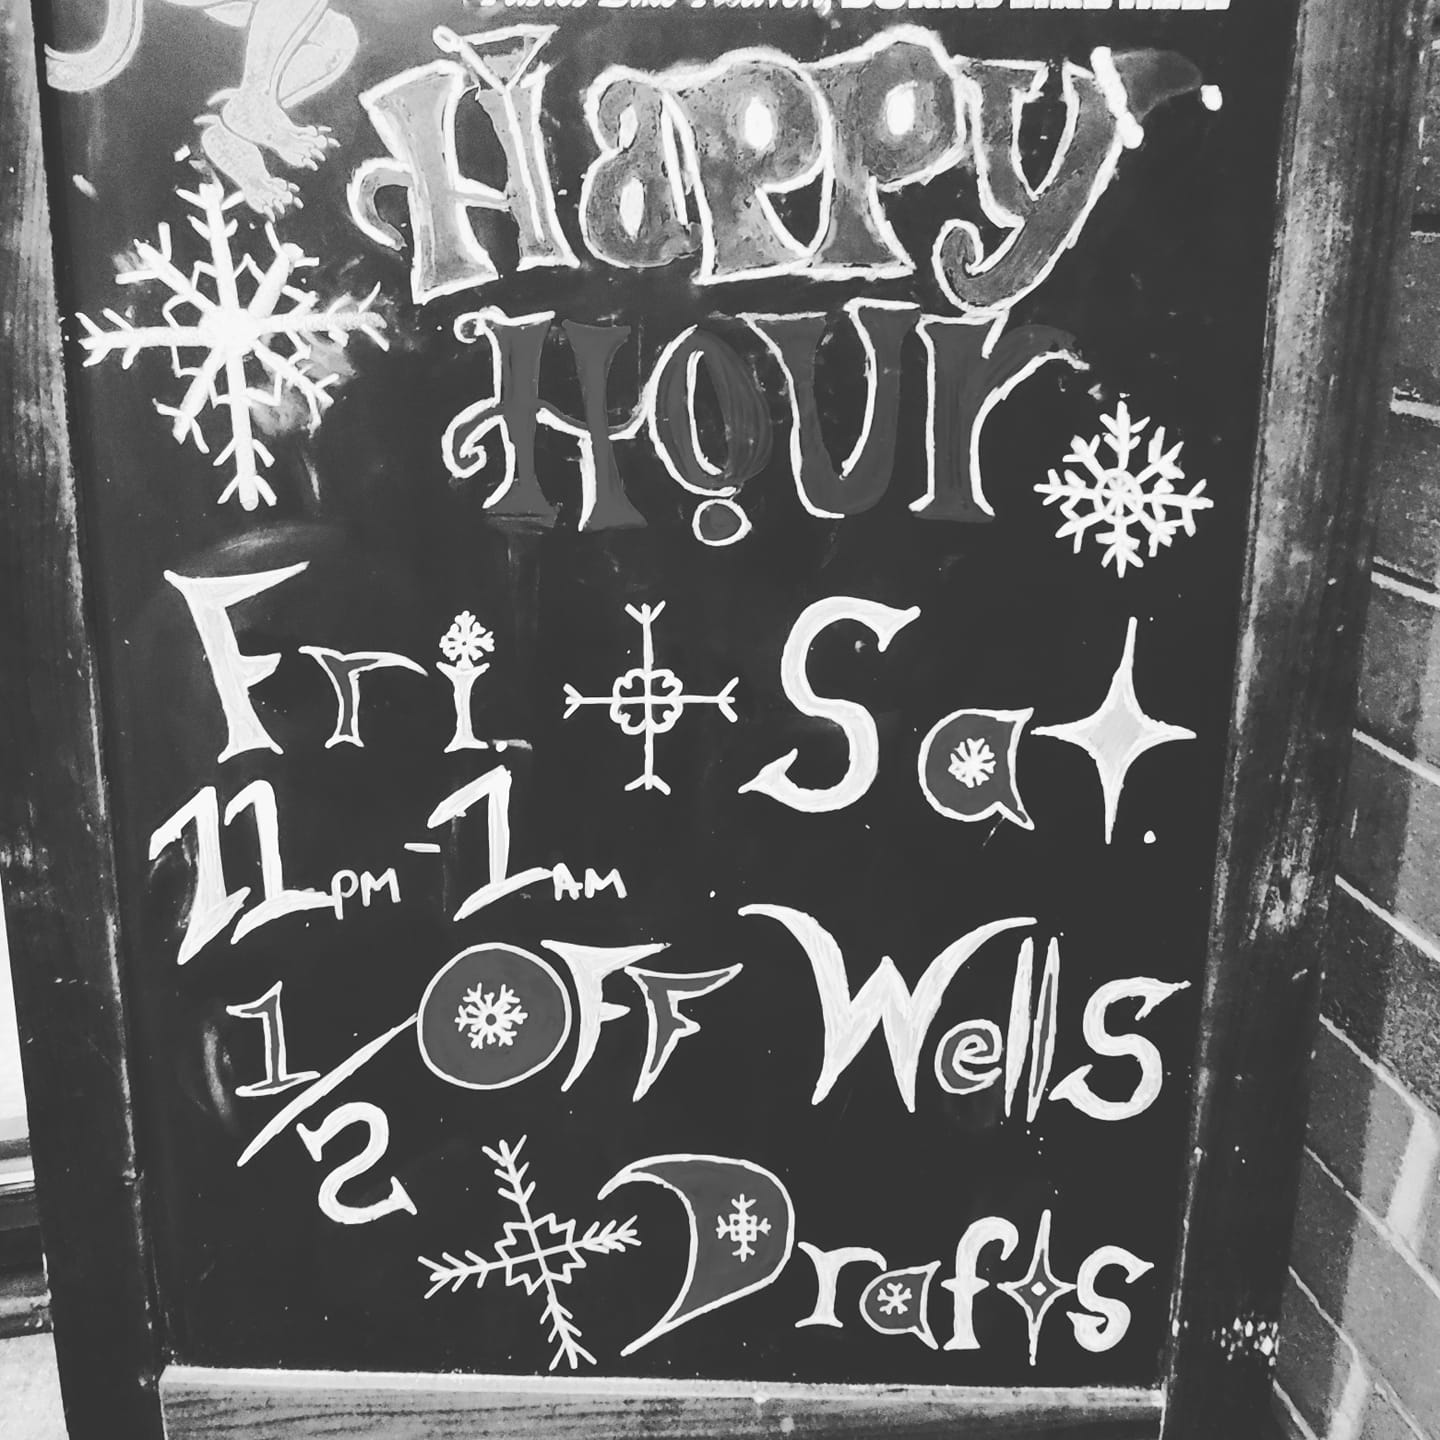 Happy
Hour
Fri. + Sat.
11PM - 1AM
1/2 OFF Wells
+ Drafts